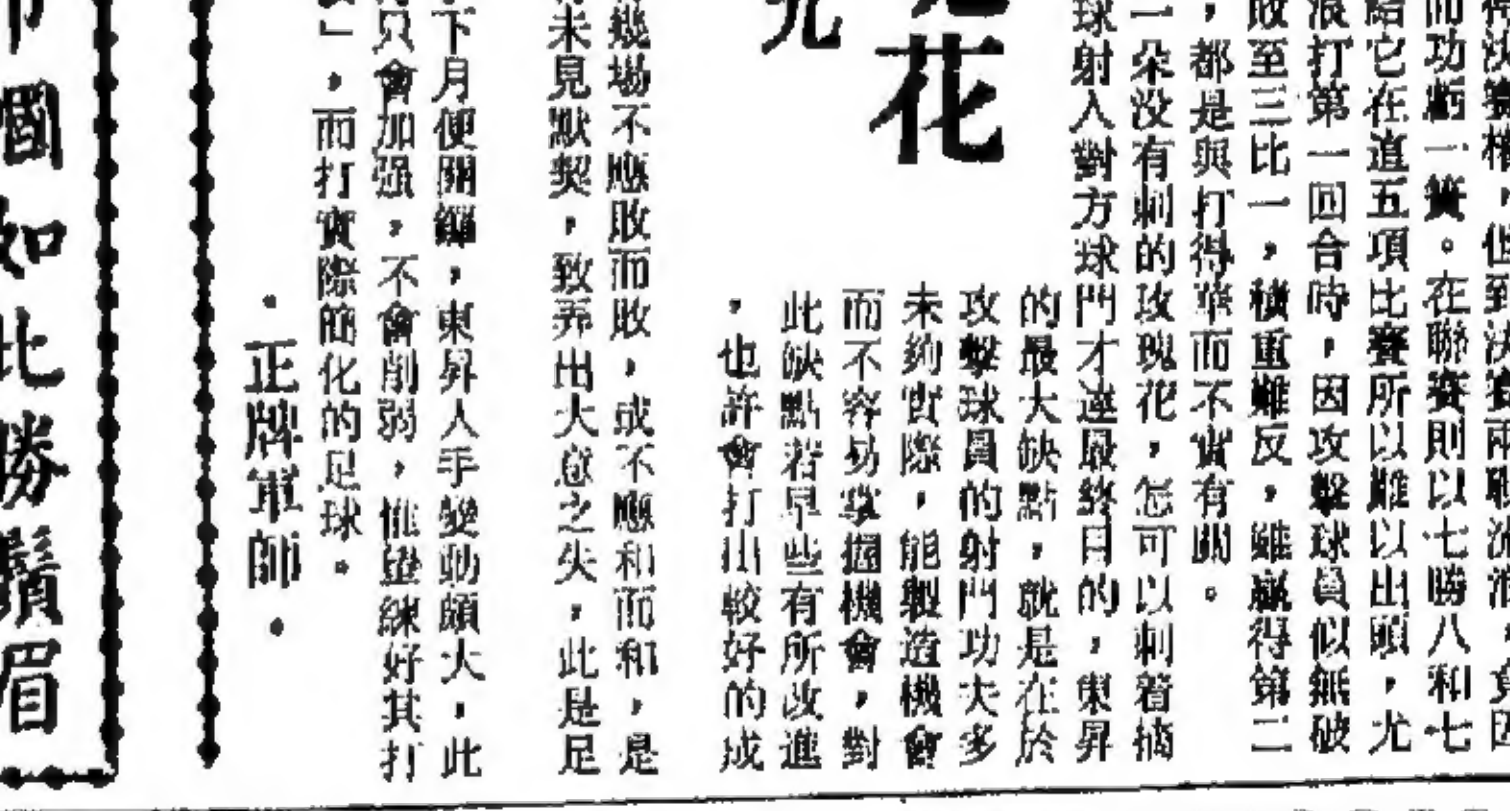 得決賽權，但到決賽兩戰
而功虧一簣。在聯賽則以七勝八和七
給它在這五項比賽所以難以出頭，尤
浪打第一回合時，因攻擊球員似無破
敗至三比一，積重難反，雖贏得第二
，都是與打得華而不實有關。
一朵没有刺的玫瑰花，怎可以刺着摘
球射入對方球門才達最終目的，東昇
的最大缺點，就是在於
攻擊球員的射門功夫多
未夠實際，能製造機會
而不容易掌握機會，對
此缺點若早些有所改進
，也許會打出較好的成
花
光
幾場不應敗而敗，或不應和而和，是
未見默契，致弄出大意之失，此是足
下月便開鑼，東昇人手變動頗大，此
只會加强，不會削弱，惟望練好其打
」，而打實際簡化的足球。
·正牌軍師·
巾幗如此勝鬚眉